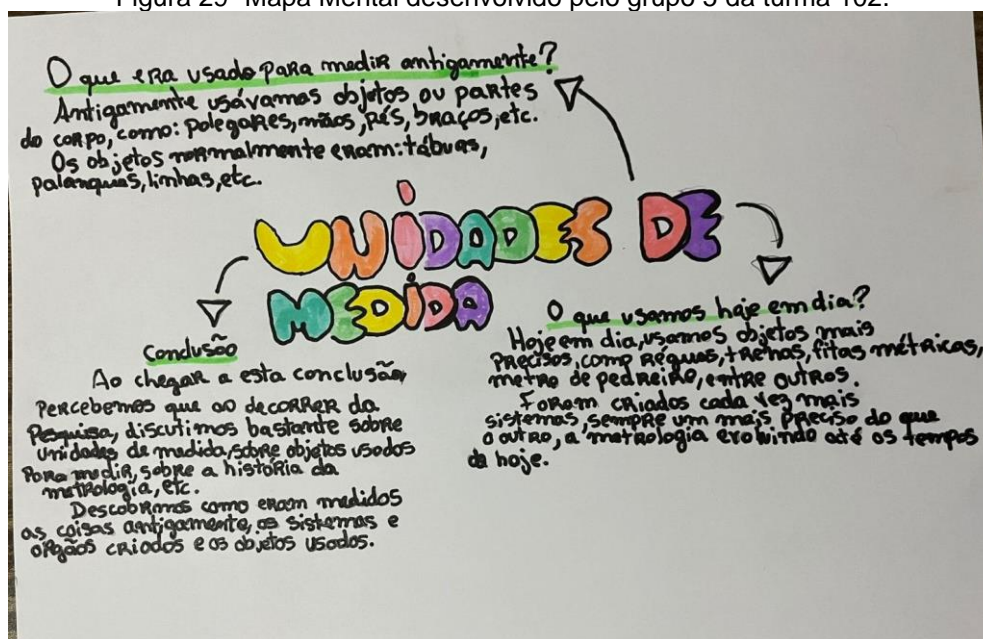 Figura 29- Mapa Mental desenvolvido pelo grupo 3 da turma 102.
O que era usado para medir antigamente?
Antigamente usávamos objetos ou partes
do corpo, como: polegares, mãos, pés, braços, etc.
Os objetos normalmente eram: tábuas,
palanquis, linhas, etc.
UNIDADES DE
MEDIDA
Conclusão
Ao chegar a esta conclusão
percebemos que ao decorrer da
Pesquisa, discutimos bastante sobre
unidades de medida, sobre objetos usados
para medir, sobre a história da
metrologia, etc.
Descobrimos como eram medidos
as coisas antigamente, os sistemas e
orgãos criados e os objetos usados.
O que usamos hoje em dia?
Hoje em dia, usamos objetos mais
precisos, como réguas, trenas, fitas métricas,
metro de pedreiro, entre outros.
Foram criados cada vez mais
sistemas, sempre um mais preciso do que
o outro, a metrologia evoluindo até os tempos
de hoje.